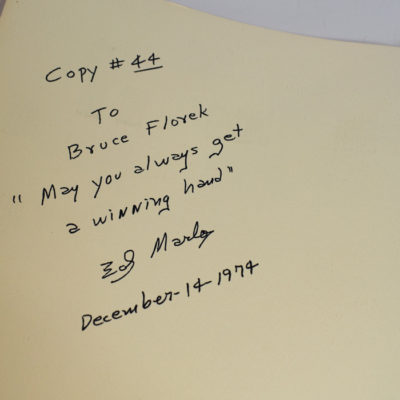 Copy # 44
To
Bruce Florek
"May you always get
a winning hand"
Ed Marlo
December-14-1974